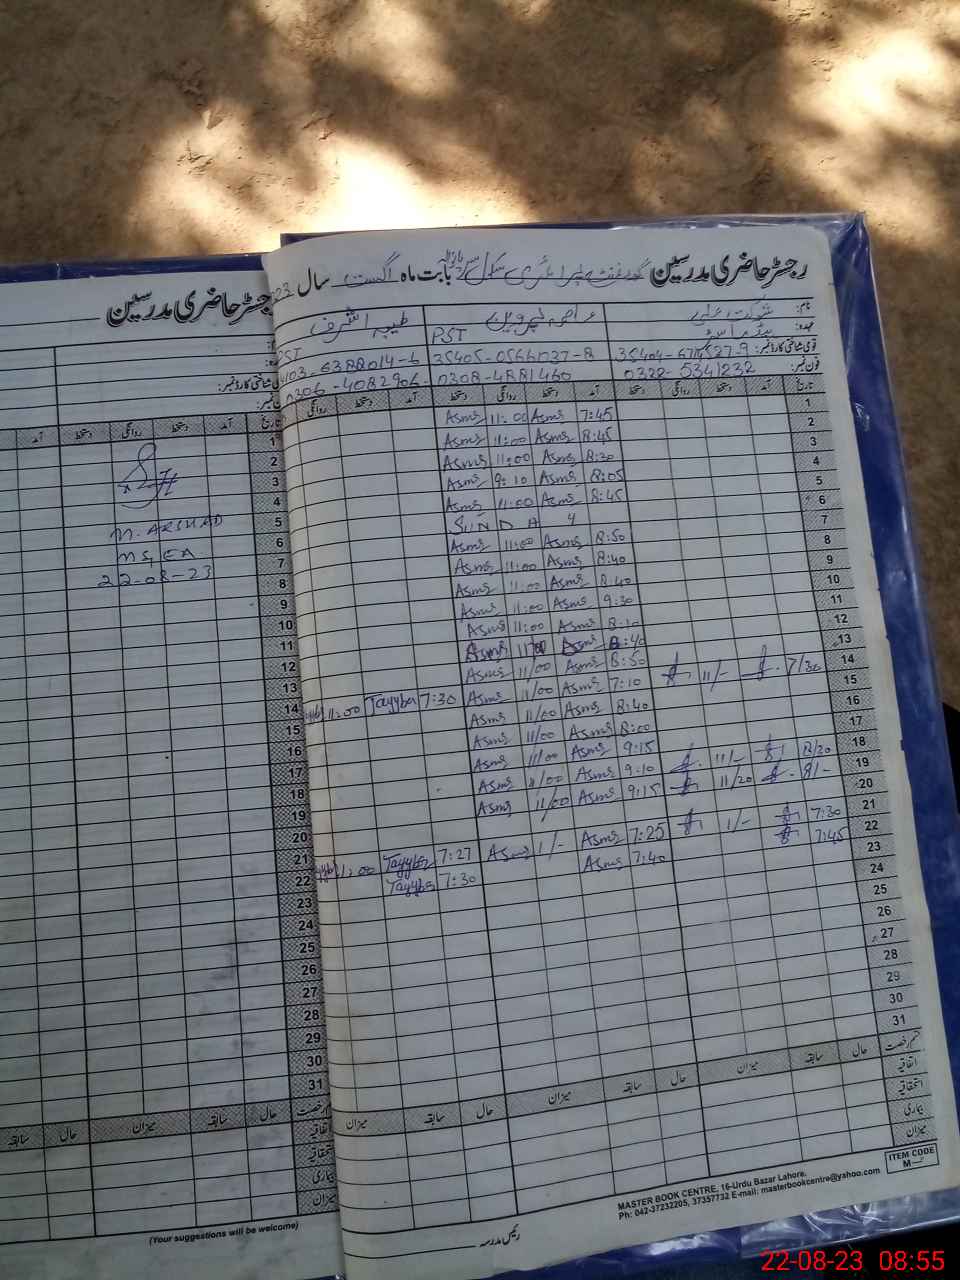 رجسٹر حاضری مدرسین گورنمنٹ پرائمری سکول بابت ماہ اگست سال 23
نام: شوکت علی عاصمہ پروین طیبہ اشرف
عہدہ: ہیڈ PST PST
قومی شناختی کارڈ نمبر: 35405-0566037-8
فون نمبر: 0322-5341232 0308-4881460 0306-4082906
تاریخ آمد دستخط روانگی دستخط آمد دستخط روانگی دستخط آمد دستخط روانگی
1 Asma 11:00 Asma 7:45
2 Asma 11:00 Asma 8:45
3 Asma 11:00 Asma 8:30
4 Asma 9:10 Asma 8:05
5 Asma 11:00 Asma 8:45
6 SUNDAY
7 Asma 11:00 Asma 8:50
8 Asma 11:00 Asma 8:40
9 Asma 11:00 Asma 8:40
10 Asma 11:00 Asma 9:30
11 Asma 11:00 Asma 8:10
12 Asma 11:00 Asma 8:40
13 Asma 11/00 Asma 8:50
14 11:00 Tayyba 7:30 Asma 11/00 Asma 7:10 11/- 7/30
15 Asma 11/00 Asma 8:40
16 Asma 11/00 Asma 8:00
17 Asma 11/00 Asma 9:15
18 Asma 11/00 Asma 9:10 11/- 8/20
19 Asma 11/00 Asma 9:15 11/20 8/-
20
21 11:00 Tayyba 7:27 Asma 1/- Asma 7:25 1/- 7:30
22 Tayyba 7:30 Asma 7:40 7:45
23
24
25
26
27
28
29
30
31
قسم رخصت حال سابقہ میزان حال سابقہ میزان حال سابقہ میزان
اتفاقیہ
استحقاقیہ
بیماری
میزان
ITEM CODE
M-
MASTER BOOK CENTRE, 16-Urdu Bazar Lahore.
Ph: 042-37232205, 37357732 E-mail: masterbookcentre@yahoo.com
رئیس مدرسہ
رجسٹر حاضری مدرسین
قومی شناختی کارڈ نمبر:
فون نمبر:
تاریخ آمد دستخط روانگی دستخط آمد
1
2
3
4
5 M. ARSHAD
6
7 MS, EA
8 22-08-23
9
10
11
12
13
14
15
16
17
18
19
20
21
22
23
24
25
26
27
28
29
30
31
قسم رخصت حال سابقہ میزان حال سابقہ
اتفاقیہ
استحقاقیہ
بیماری
میزان
(Your suggestions will be welcome)
22-08-23 08:55